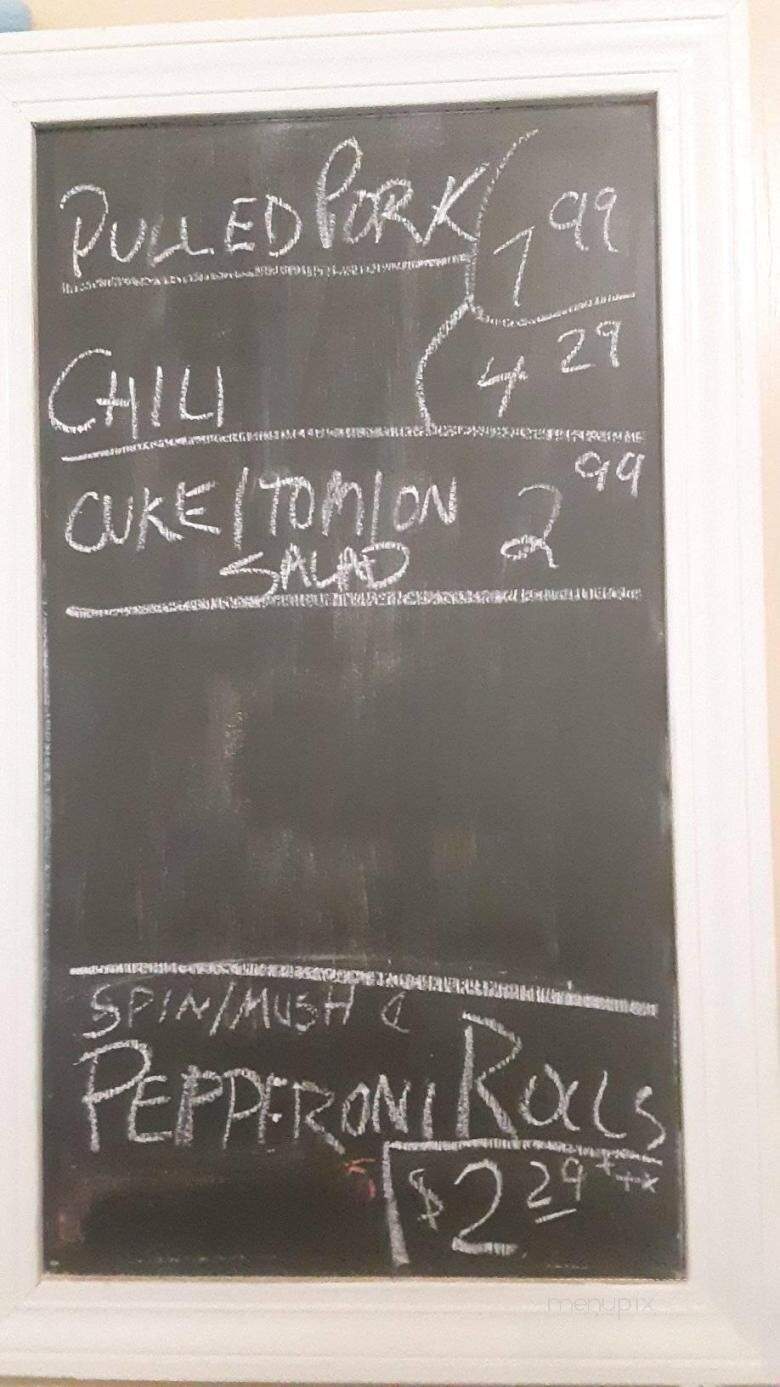 PULLED PORK 7 99
CHILI 4 29
CUKE/TOM/ON 2 99
SALAD
SPIN/MUSH &
PEPPERONI ROLLS
$2 29 + tx
menupix